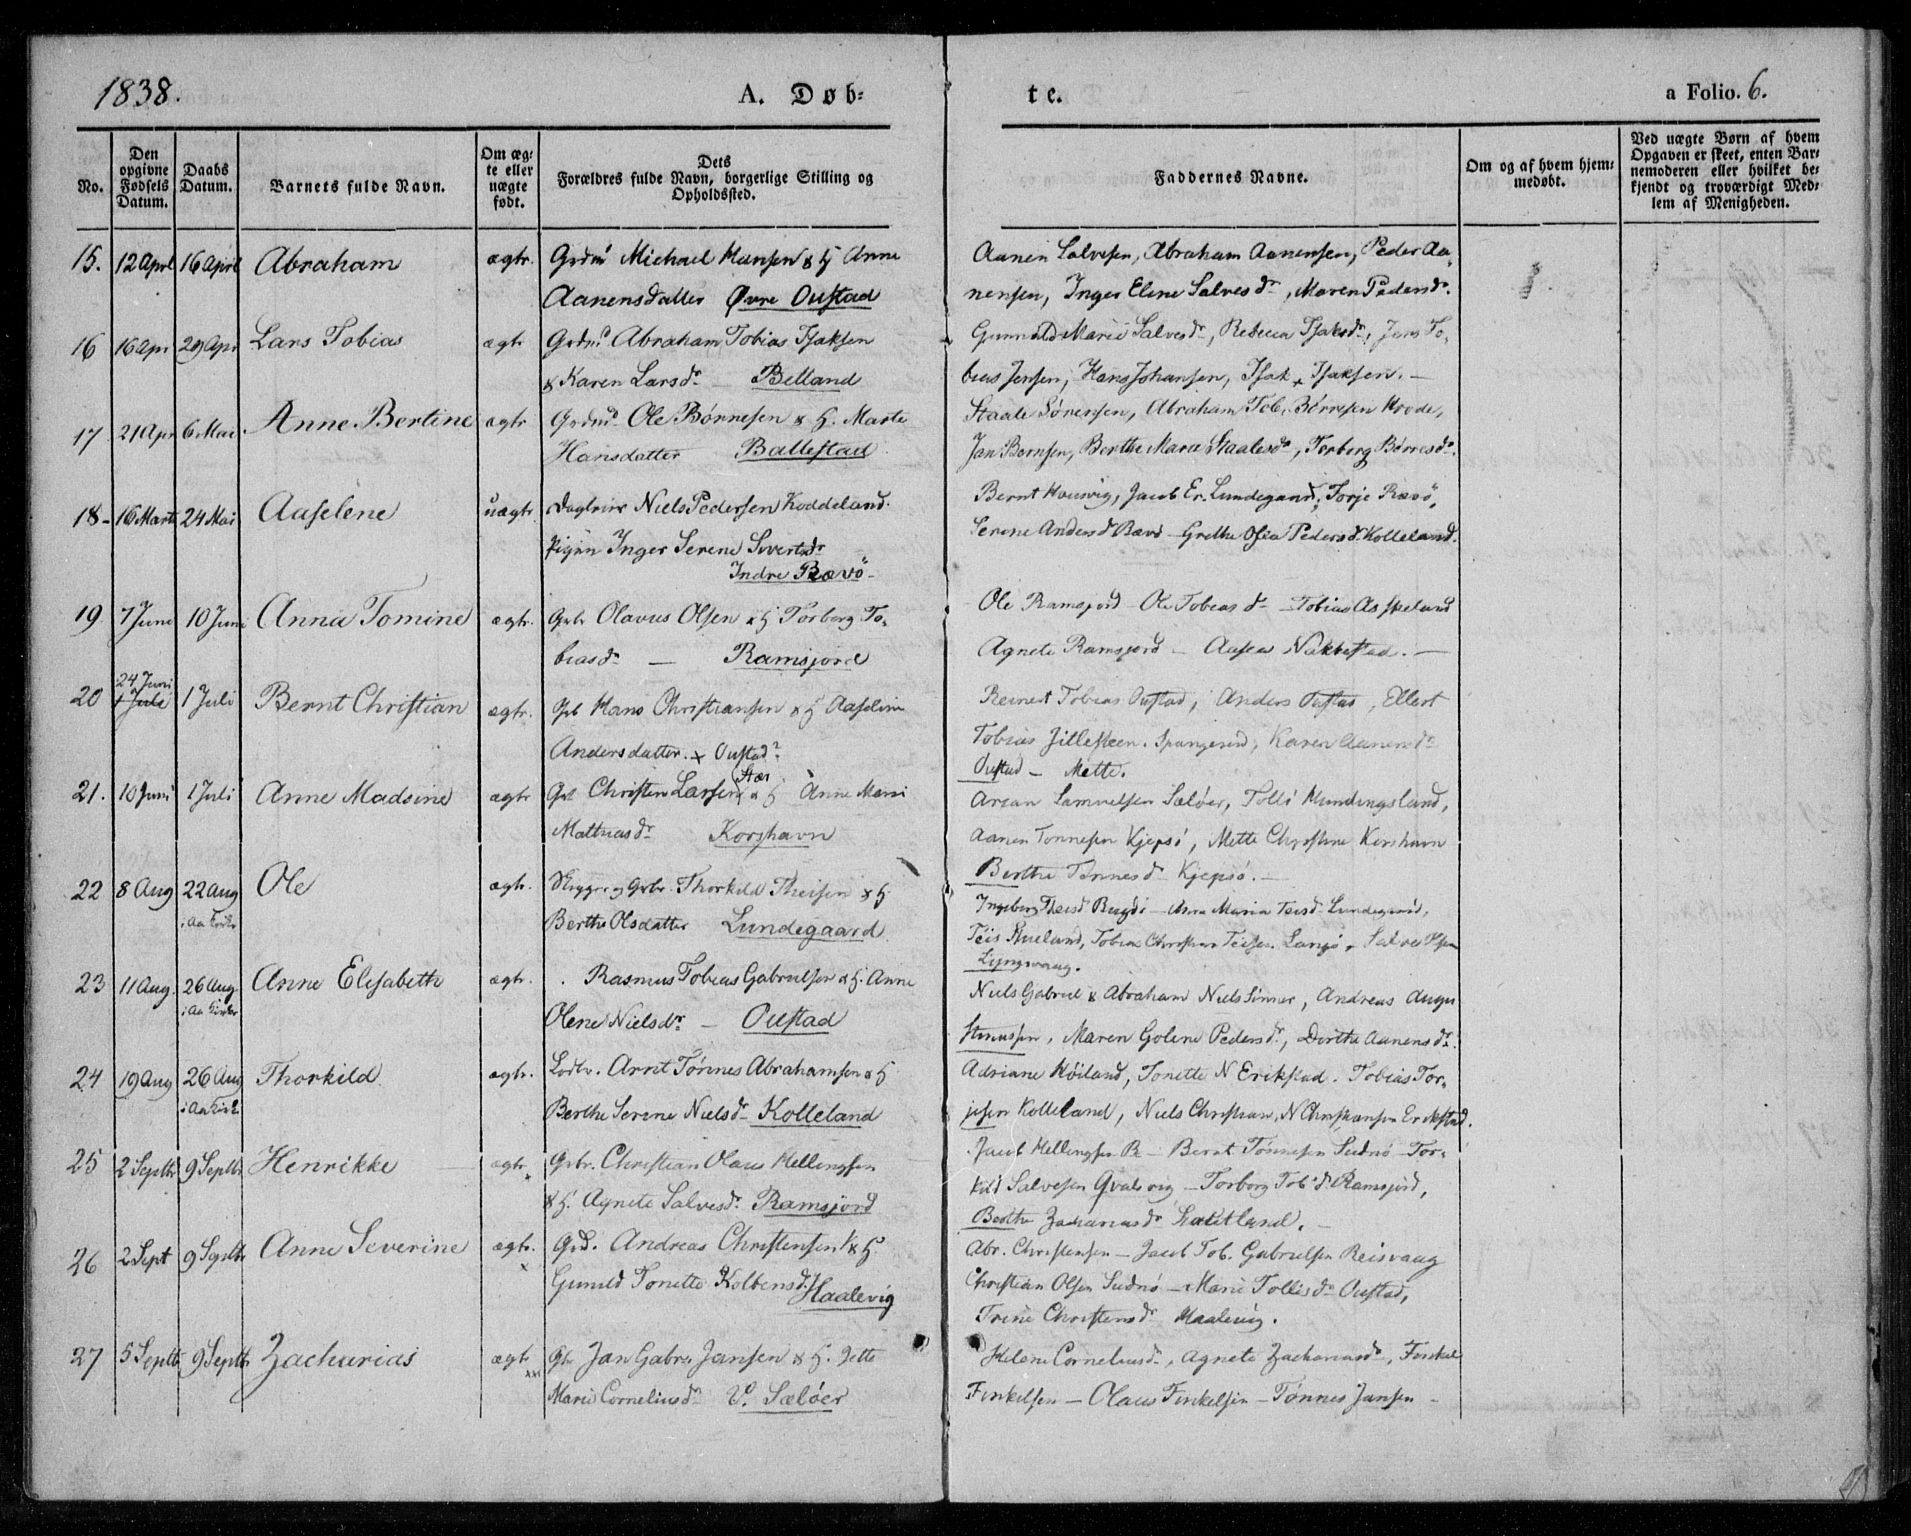 1838. A. Døb- te. a Folio. 6.
No. Den opgivne Fødsels Datum. Daabs Datum. Barnets fulde Navn. Om ægte eller uægte født. Dets Forældres fulde Navn, borgerlige Stilling og Opholdssted. Faddernes Navne. Om og af hvem hjemmedøbt. Ved uægte Børn af hvem Opgaven er skeet, enten Barnemoderen eller hvilket bekjendt og troværdigt Medlem af Menigheden.
15. 12 Aprl 16 Aprl Abraham ægtr. Michael Hansen & H Anne
Aanensdatter Øvre Oustad
Aanen Salvesen, Abraham Aanensen, Peder Aa-
nensen, Inger Eline Salvesdr, Maren Pedersdr.
16 16 Apr 29 Apr Lars Tobias ægtr Abraham Tobias Isaksen
& Karen Larsdr – Belland
Marie Salvesdr, Rebecca Isaksdr, Jens To-
bias Jensen, Hans Johansen, Isak + Isaksen. –
17 21 Apr 6 Mai Anne Bertine ægtr Ole Børnesen & H. Marte
Hansdatter Ballestad
Staale Sørensen, Abraham Tob. Børresen
Jan Bernsen, Berthe Marie Staalesdr, Torborg Børresdr.
18- 16 Marts 24 Mai Aaselene uægtr Niels Pedersen Koddeland.
Pigen Inger Serene Sivertsdr
Indre Rævø-
Bernt Houvig, Jacob Er. Lundegaard, Torje Rævø,
Serene Andersd Grethe Pedersd. Kolleland.
19 7 June 10 June Anna Tomine ægtr. Gbr Olavus Olsen & H Torborg To-
biasdr – Ramsjord
Ole Ramsjord – Ole Tobiasdr – Tobias
Agnete Ramsjord – Aasen Nakkestad. –
20 24 Juni 1 Juli 1 Juli Bernt Christian ægtr. Gb Hans Christiansen & H Aaseline
Andersdatter. + Oustad
Reinert Tobias Oustad, Anders Oustad, Ellert
Tobias Karen Aanensdr
Oustad – Mette.
21. 10 Juni 1 Juli Anne Madsine ægtr Gb Christen Larsen & H Anne Marie
Mathiasdr Korshavn
Samuelsen Sæløer, Tolli Hundingsland,
Aanen Tønnesen Kjepsø, Mette Christine Korshavn
Berthe Tønnesd Kjepsø. –
22 8 Aug 22 Aug i Aa Kirke Ole ægtr. Thorkild Theisen & H.
Berthe Olsdatter Lundegaard
Ingeborg Theisd – Anna Maria Teisd Lundegaard,
Teis Tobias Christian Teisen Langø
Lyngvaag.
23 11 Aug. 26 Aug i Aa Kirke Anne Elisabeth ægtr. Rasmus Tobias Gabrielsen & H. Anne
Olene Nielsdr – Oustad
Niels Gabriel & Abraham Andreas
Maren Golene Pedersdr, Dorthe Aanensdr.
24 19 Aug 26 Aug i Aa Kirk. Thorkild ægtr. Arnt Tønnes Abrahamsen & H
Berthe Serene Nielsdr Kolleland
Adriane Høiland, Tonette N Erikstad. Tobias Tor-
jesen Kolleland, Niels Christian, N Christiansen Erikstad.
25 2 Septbr 9 Septbr Henrikke ægtr. Gbr. Christian Olaus Hellingsen
& H. Agnete Salvesdr Ramsjord
Jacob Hellingsen R – Bernt Tønnesen Sudnø – Tor-
kild Salvesen Qvalevig – Torborg Tob.dr Ramsjord,
Berthe Zachariasdr –
26 2 Sept 9 Septbr Anne Severine ægtr. Andreas Christensen & H.
Gunild Tonette Kolbensd. Haalevig
Abr. Christensen – Jacob Tob. Gabrielsen Reisvaag
Christian Olsen Sudnø – Marie Tollisdr Oustad,
Trine Christensdr Haalevig.
27 5 Septb 9 Septbr Zacharias ægtr Jan Gabr. Jansen & H. Jette
Marie Corneliusdr V. Sæløer
Helene Corneliusdr, Agnete Zachariasdr, Finkel
Finkelsen – Olaus Finkelsen – Tønnes Jansen –